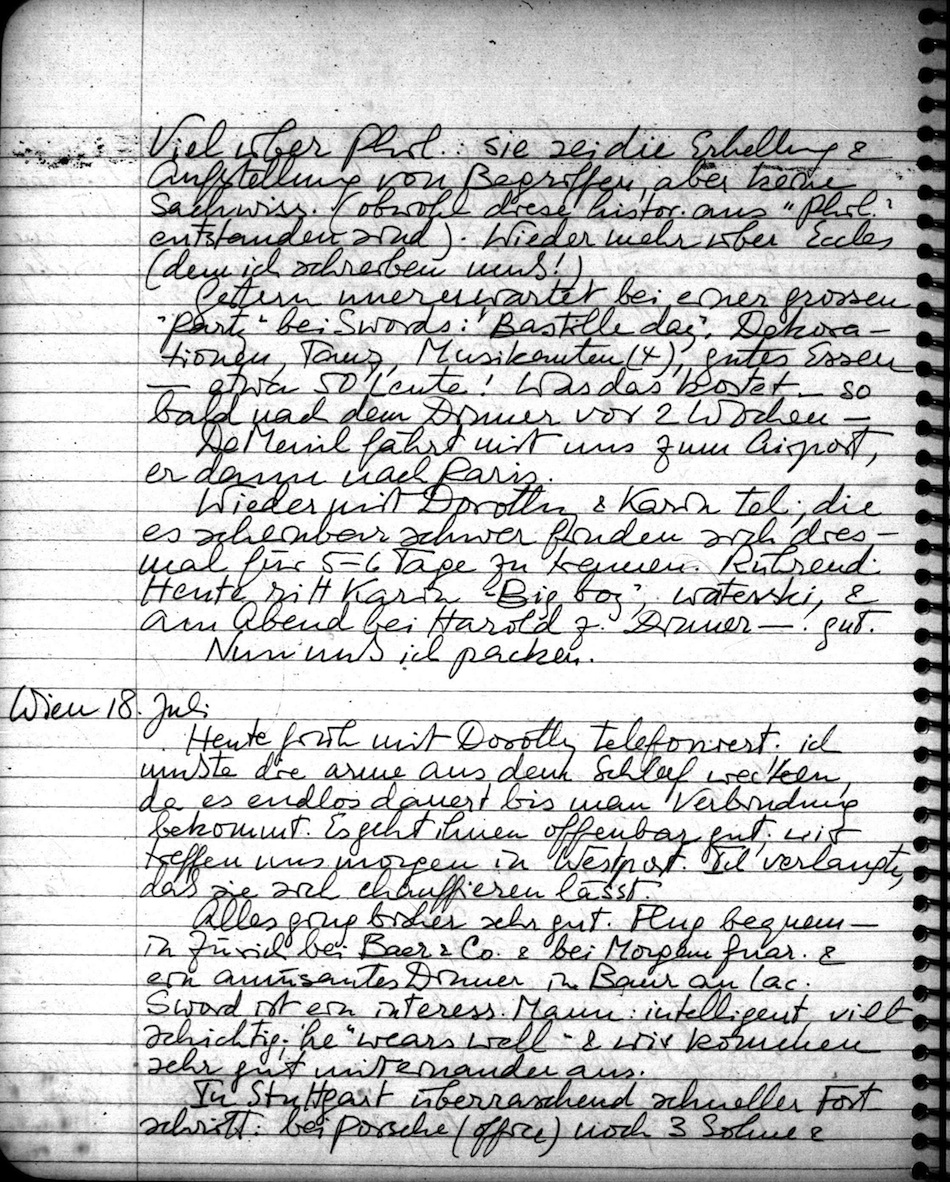 Viel über Phil.: sie sei die Erhellung &
Aufstellung von Begriffen, aber keine
Sachwiss. (obwohl diese histor. aus "Phil."
entstanden sind). Wieder mehr über Eccles
(dem ich schreiben muß!)
Gestern unererwartet bei einer grossen
"Party" bei Swords: "Bastille day". Dekora-
tionen, Tanz, Musikanten (4), gutes Essen
— etwa 50 Leute! Was das kostet — so
bald nach dem Dinner vor 2 Wochen —
De Menil fährt mit uns zum Airport,
er dann nach Paris.
Wieder mit Dorothy & Karin tel., die
es scheinbar schwer finden sich dies-
mal für 5-6 Tage zu trennen. Rührend.
Heute ritt Karin "Big boy", waterski, &
am Abend bei Harold z. Dinner — : gut.
Nun muß ich packen.
Wien 18. Juli
Heute früh mit Dorothy telefoniert. ich
mußte die arme aus dem Schlaf wecken,
da es endlos dauert bis man Verbindung
bekommt. Es geht ihnen offenbar gut. wir
treffen uns morgen in Westport. Ich verlangte,
daß sie sich chauffieren lässt.
Alles ging bisher sehr gut. Flug bequem —
in Zürich bei Baer & Co. & bei Morgan Guar. &
ein amüsantes Dinner in Baur au Lac.
Sword ist ein interess. Mann: intelligent, viel
schichtig; he "wears well" & wir kommen
sehr gut miteinander aus.
In Stuttgart überraschend schneller Fort
schritt: bei Porsche (office) noch 3 Söhne &